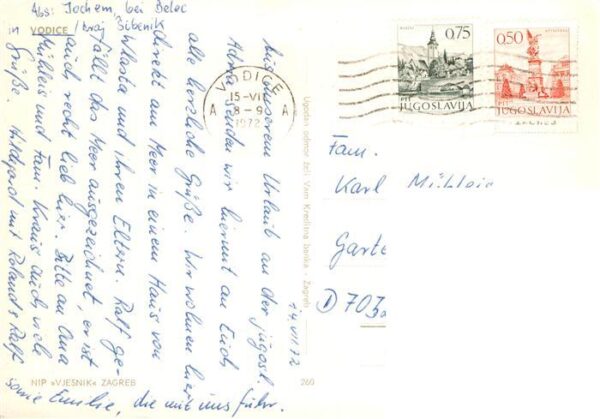 Abs: Jochem, bei Belec
VODICE / kraj Šibenik
Aus unserem Urlaub an der jugosl.
Adria senden wir hiermit an Euch
alle herzliche Grüße. Wir wohnen hier
direkt am Meer in einem Haus von
Vlasta und ihren Eltern. Ralf ge-
fällt das Meer ausgezeichnet, er ist
auch recht lieb hier. Bitte an Oma
Mühleis und Fam. Kraus auch viele
Grüße. Hildgard mit Roland + Ralf
sowie Emilie, die mit uns fuhr.
14.VII.72
VODICE
15-VII
8-9
1972
A A
0,75
PTT JUGOSLAVIJA
0,50
PTT JUGOSLAVIJA
Fam.
Karl
Garte
D 703
Ugodan odmor želi Vam Kreditna banka - Zagreb
NIP »VJESNIK« ZAGREB
260